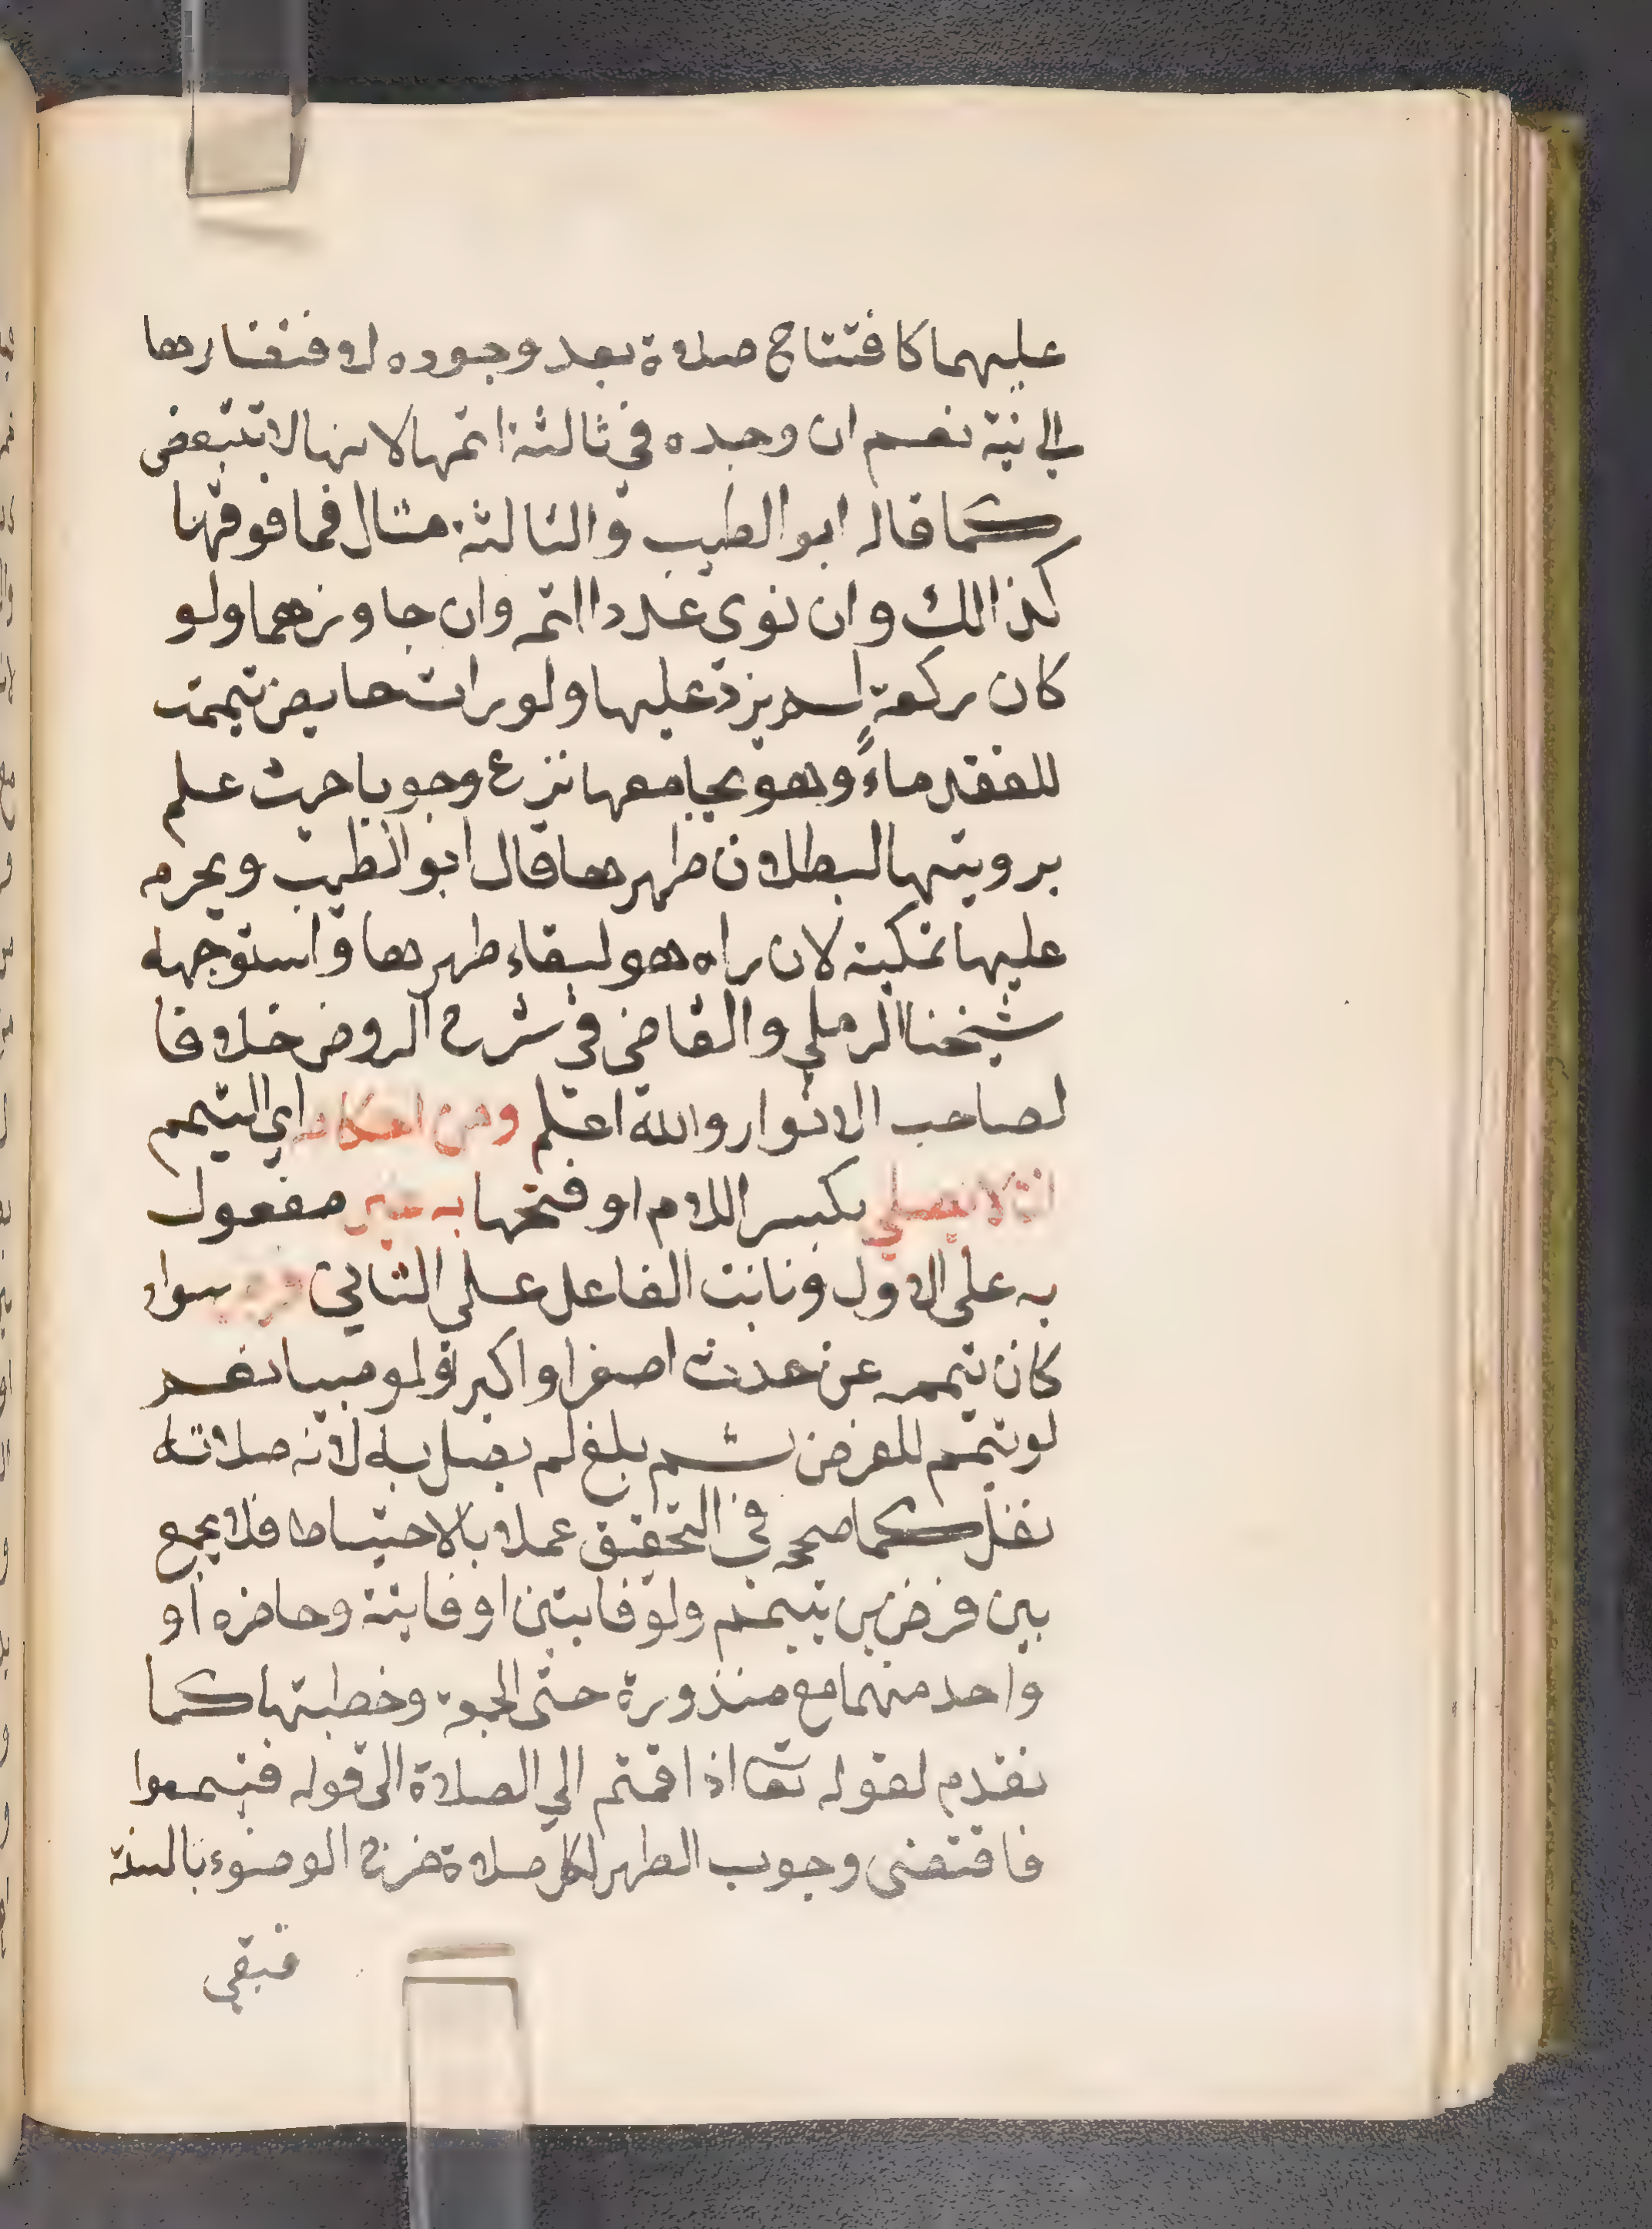 عليهما كافتتاح صلاة بعد وجوده لافتقارها
الي نية نعم ان وجده في ثالثة اتمها لانها لا تتبعض
كما قاله ابو الطيب والثالثة مثال فما فوقها
كذالك وان نوى عددا اتمه وان جاوزهما ولو
كان ركعة لم يزد عليها ولو رات حايض تيممت
للفقد ماءً وهو يجامعها نزع وجوبا حيث علم
برويتها لبطلان طهرها قال ابو الطيب ويحرم
عليها تمكينه لان راه هو لبقاء طهرها واستوجهه
شيخنا الرملي والقاضي في شرح الروض خلافا
لصاحب الانوار والله اعلم ومن احكامه اي التيمم
انه لا يصلي بكسر اللام او فتحها به غير مفعول
به على الاول ونائب الفاعل على الثاني فرض سواء
كان تيمم عن حدث اصغر او اكبر ولو صبيا نعم
لو تيمم للفرض ثم بلغ لم يصل به لانه صلاته
نفل كما صححه في التحقيق عملا بالاحتياط فلا يجمع
بين فرضين بتيمم ولو فايتين او فايتة وحاضره او
واحد منهما مع منذورة حتى الجمعة وخطبتها كما
تقدم لقوله تعا اذا قمتم الي الصلاة الى قوله فتيمموا
فاقتضى وجوب الطهر لكل صلاة خرج الوضوء بالسنة
فبقي